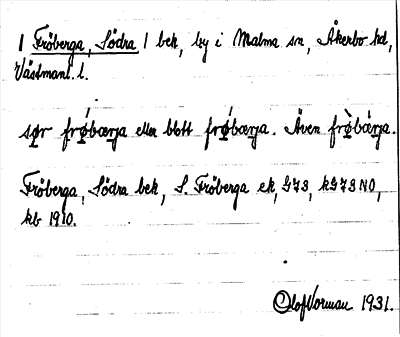 1 Fröberga, Södra / bek, by i Malma sn, Åkerbo hd,
Västmanl. l.
sø̨r frǿ̨bærja eller blott frǿ̨bærja. Även frø̨̀bä́rja.
Fröberga, Södra bek, S. Fröberga ek, G73, kG73 NO,
kb 1910.
Olof Vorman 1931.